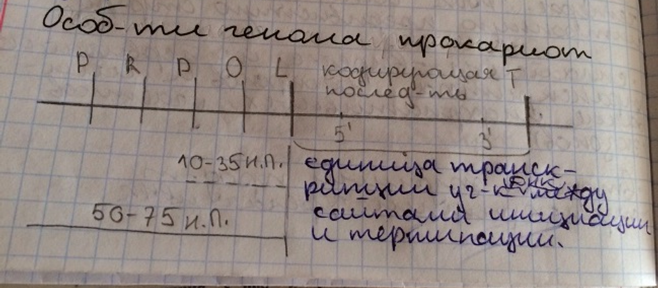 Особ-ти генома прокариот
P R P O L кодирующая T
послед-ть
5' 3'
10-35 н.п. единица транск-
рипции уч-к ДНК между
50-75 н.п. сайтами инициации
и терминации.